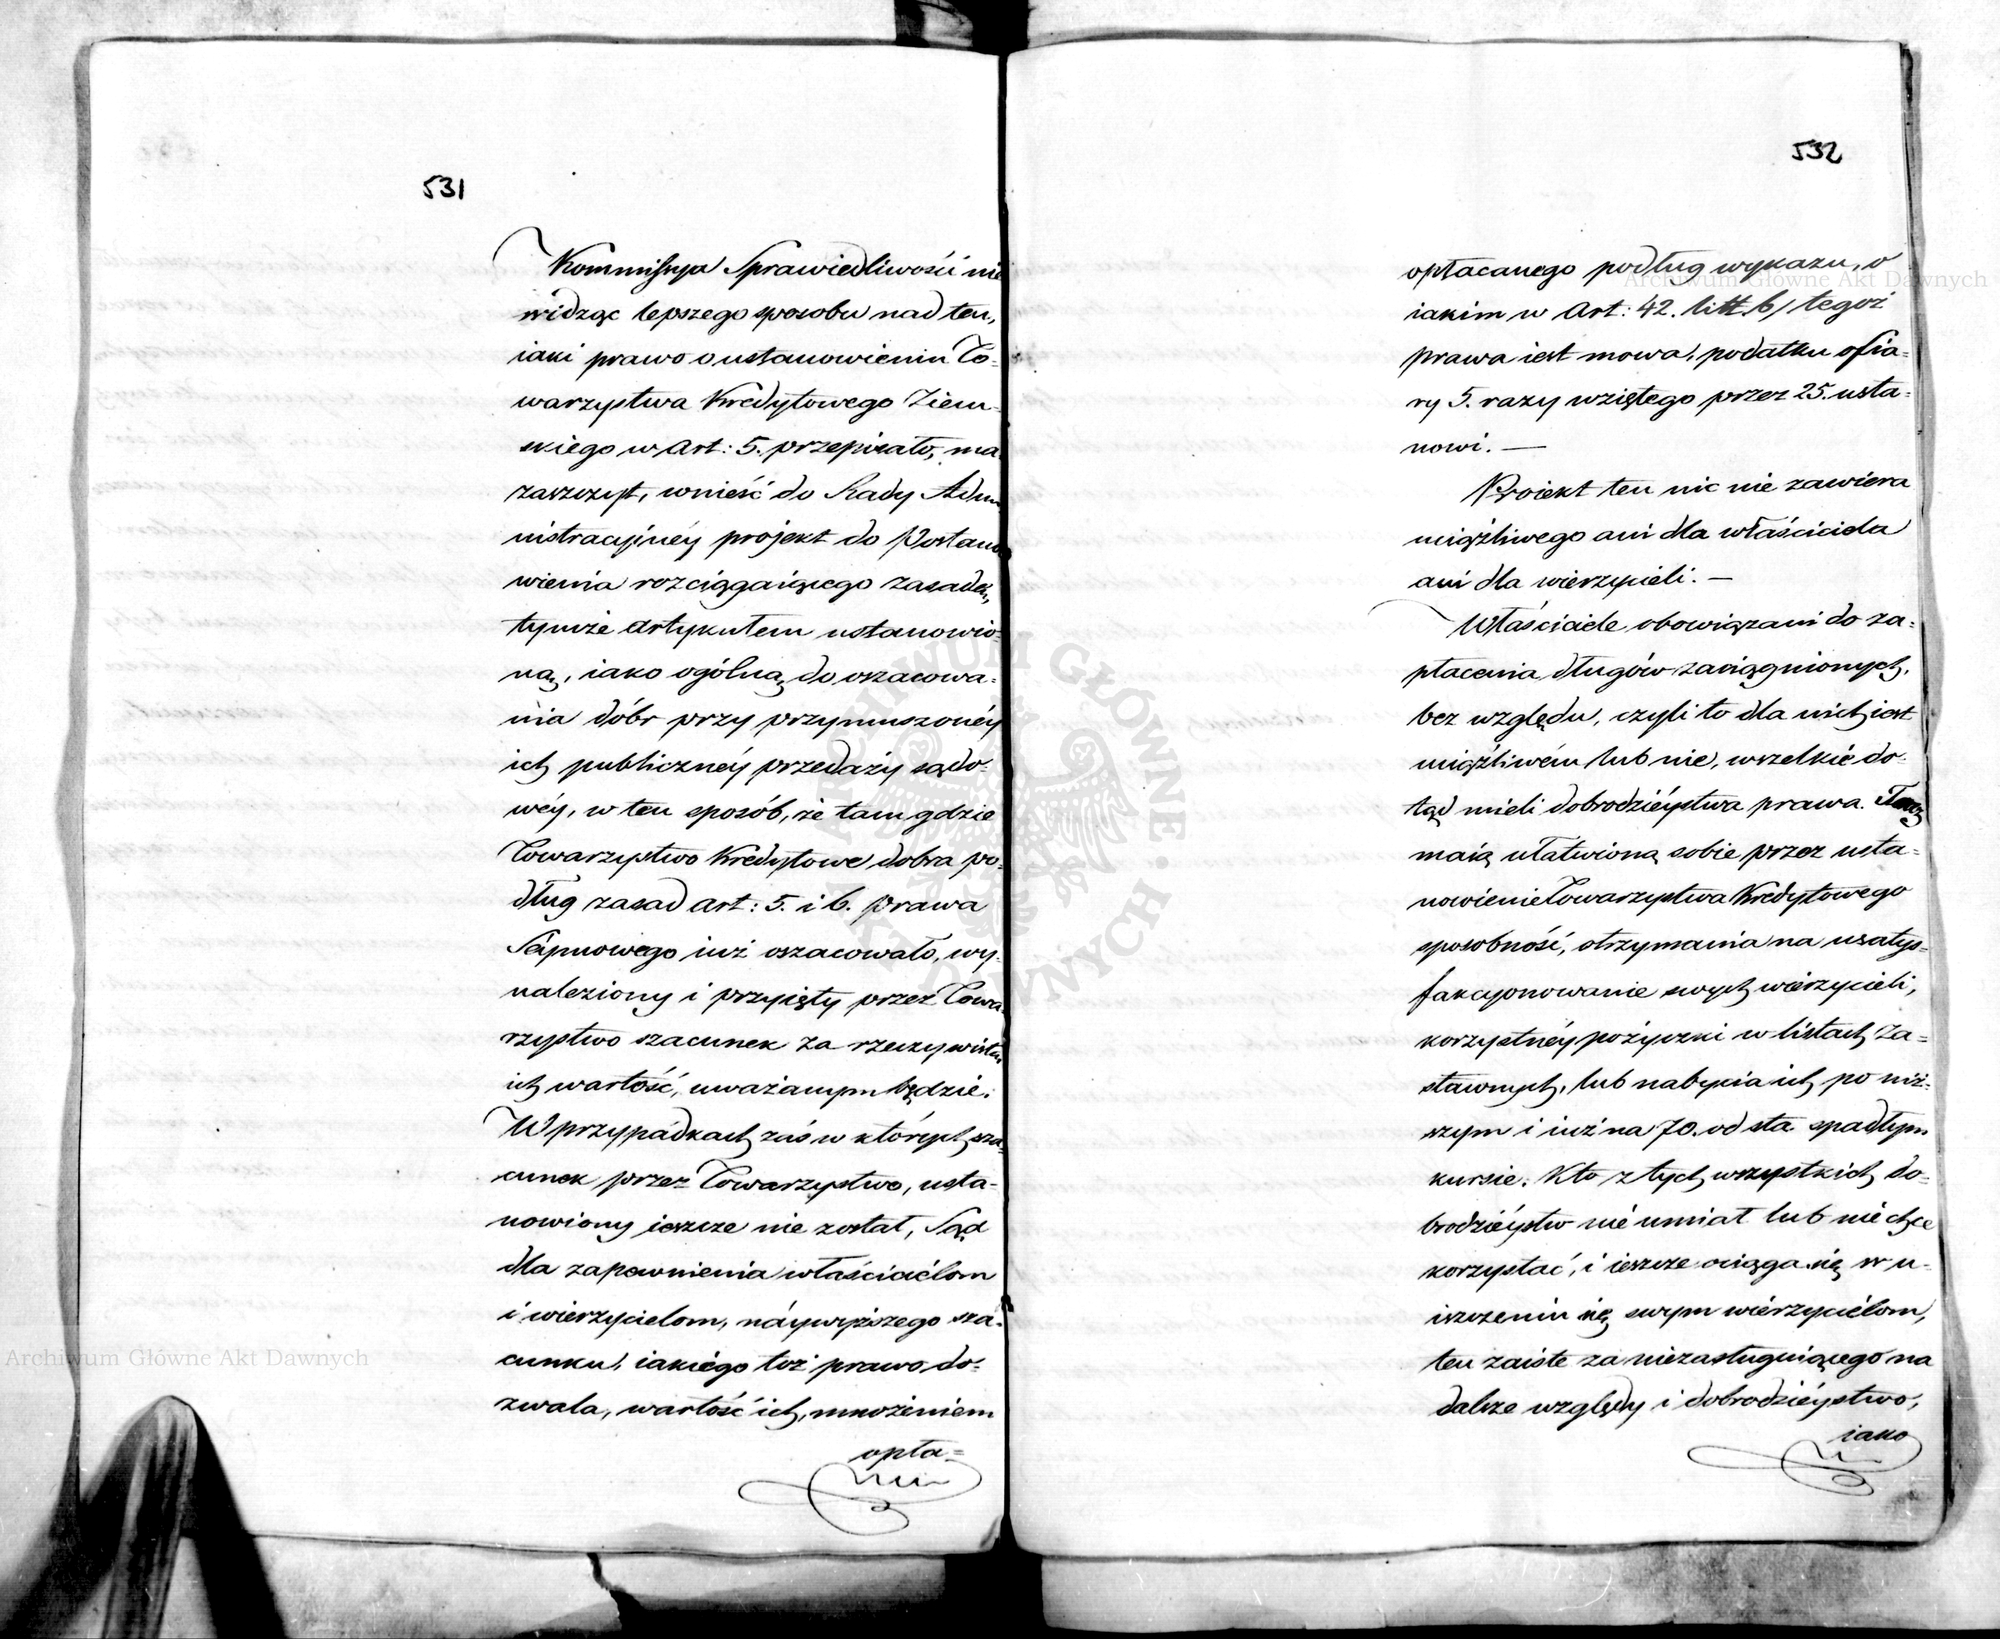 531
Kommissya Sprawiedliwości nie
widząc lepszego sposobu nad ten,
iaki prawo o ustanowieniu To-
warzystwa Kredytowego Ziem-
skiego w Art: 5. przepisało, ma
zaszczyt, wnieść do Rady Admi
nistracyjnéy projekt do Postano
wienia rozciągaiącego zasadę,
tymże artykułem ustanowio-
ną, iako ogólną do oszacowa=
nia dóbr przy przymuszonéy
ich publicznéy przedaży sądo-
wéy, w ten sposób, że tam gdzie
Towarzystwo Kredytowe dobra po-
dług zasad art: 5. i 6. prawa
Séymowego iuż oszacowało, wy-
naleziony i przyięty przez Towa
rzystwo szacunek za rzeczywistą
ich wartość, uważanym będzie.
W przypadkach zaś w których sza-
cunek przez Towarzystwo, usta-
nowiony ieszcze nie został, Sąd
dla zapewnienia właścicielom
i wierzycielom, naywyższego sza-
cunku, iakiego toż prawo do-
zwala, wartość ich, mnożeniem
opła=
532
opłacanego podług wykazu, o
iakim w Art: 42. litt. b/ tegoż
prawa iest mowa, podatku ofia=
ry 5. razy wziętego przez 25. usta=
nowi. —
Proiekt ten nic nie zawiera
uciążliwego ani dla właściciela
ani dla wierzycieli. —
Właściciele obowiązani do za=
płacenia długów zaciągnionych,
bez względu, czyli to dla nich iest
uciążliwém lub nie, wszelkie do-
tąd mieli dobrodzieystwa prawa. Teraz
maią ułatwioną sobie przez usta=
nowienie Towarzystwa Kredytowego
sposobność, otrzymania na usatys=
fakcyonowanie swych wierzycieli,
korzystnéy pożyczki w listach Za=
stawnych, lub nabycia ich po niż-
szym i iuż na 70. od sta spadłym
kursie. Kto z tych wszystkich do-
brodzieystw nie umiał lub nie chce
korzystać, i ieszcze ociąga się w u-
iszczeniu się swym wierzycielom,
ten zaiste za niezasługuiącego na
dalsze względy i dobrodzieystwo,
iako
Archiwum Główne Akt Dawnych
Archiwum Główne Akt Dawnych
ARCHIWUM GŁÓWNE AKT DAWNYCH